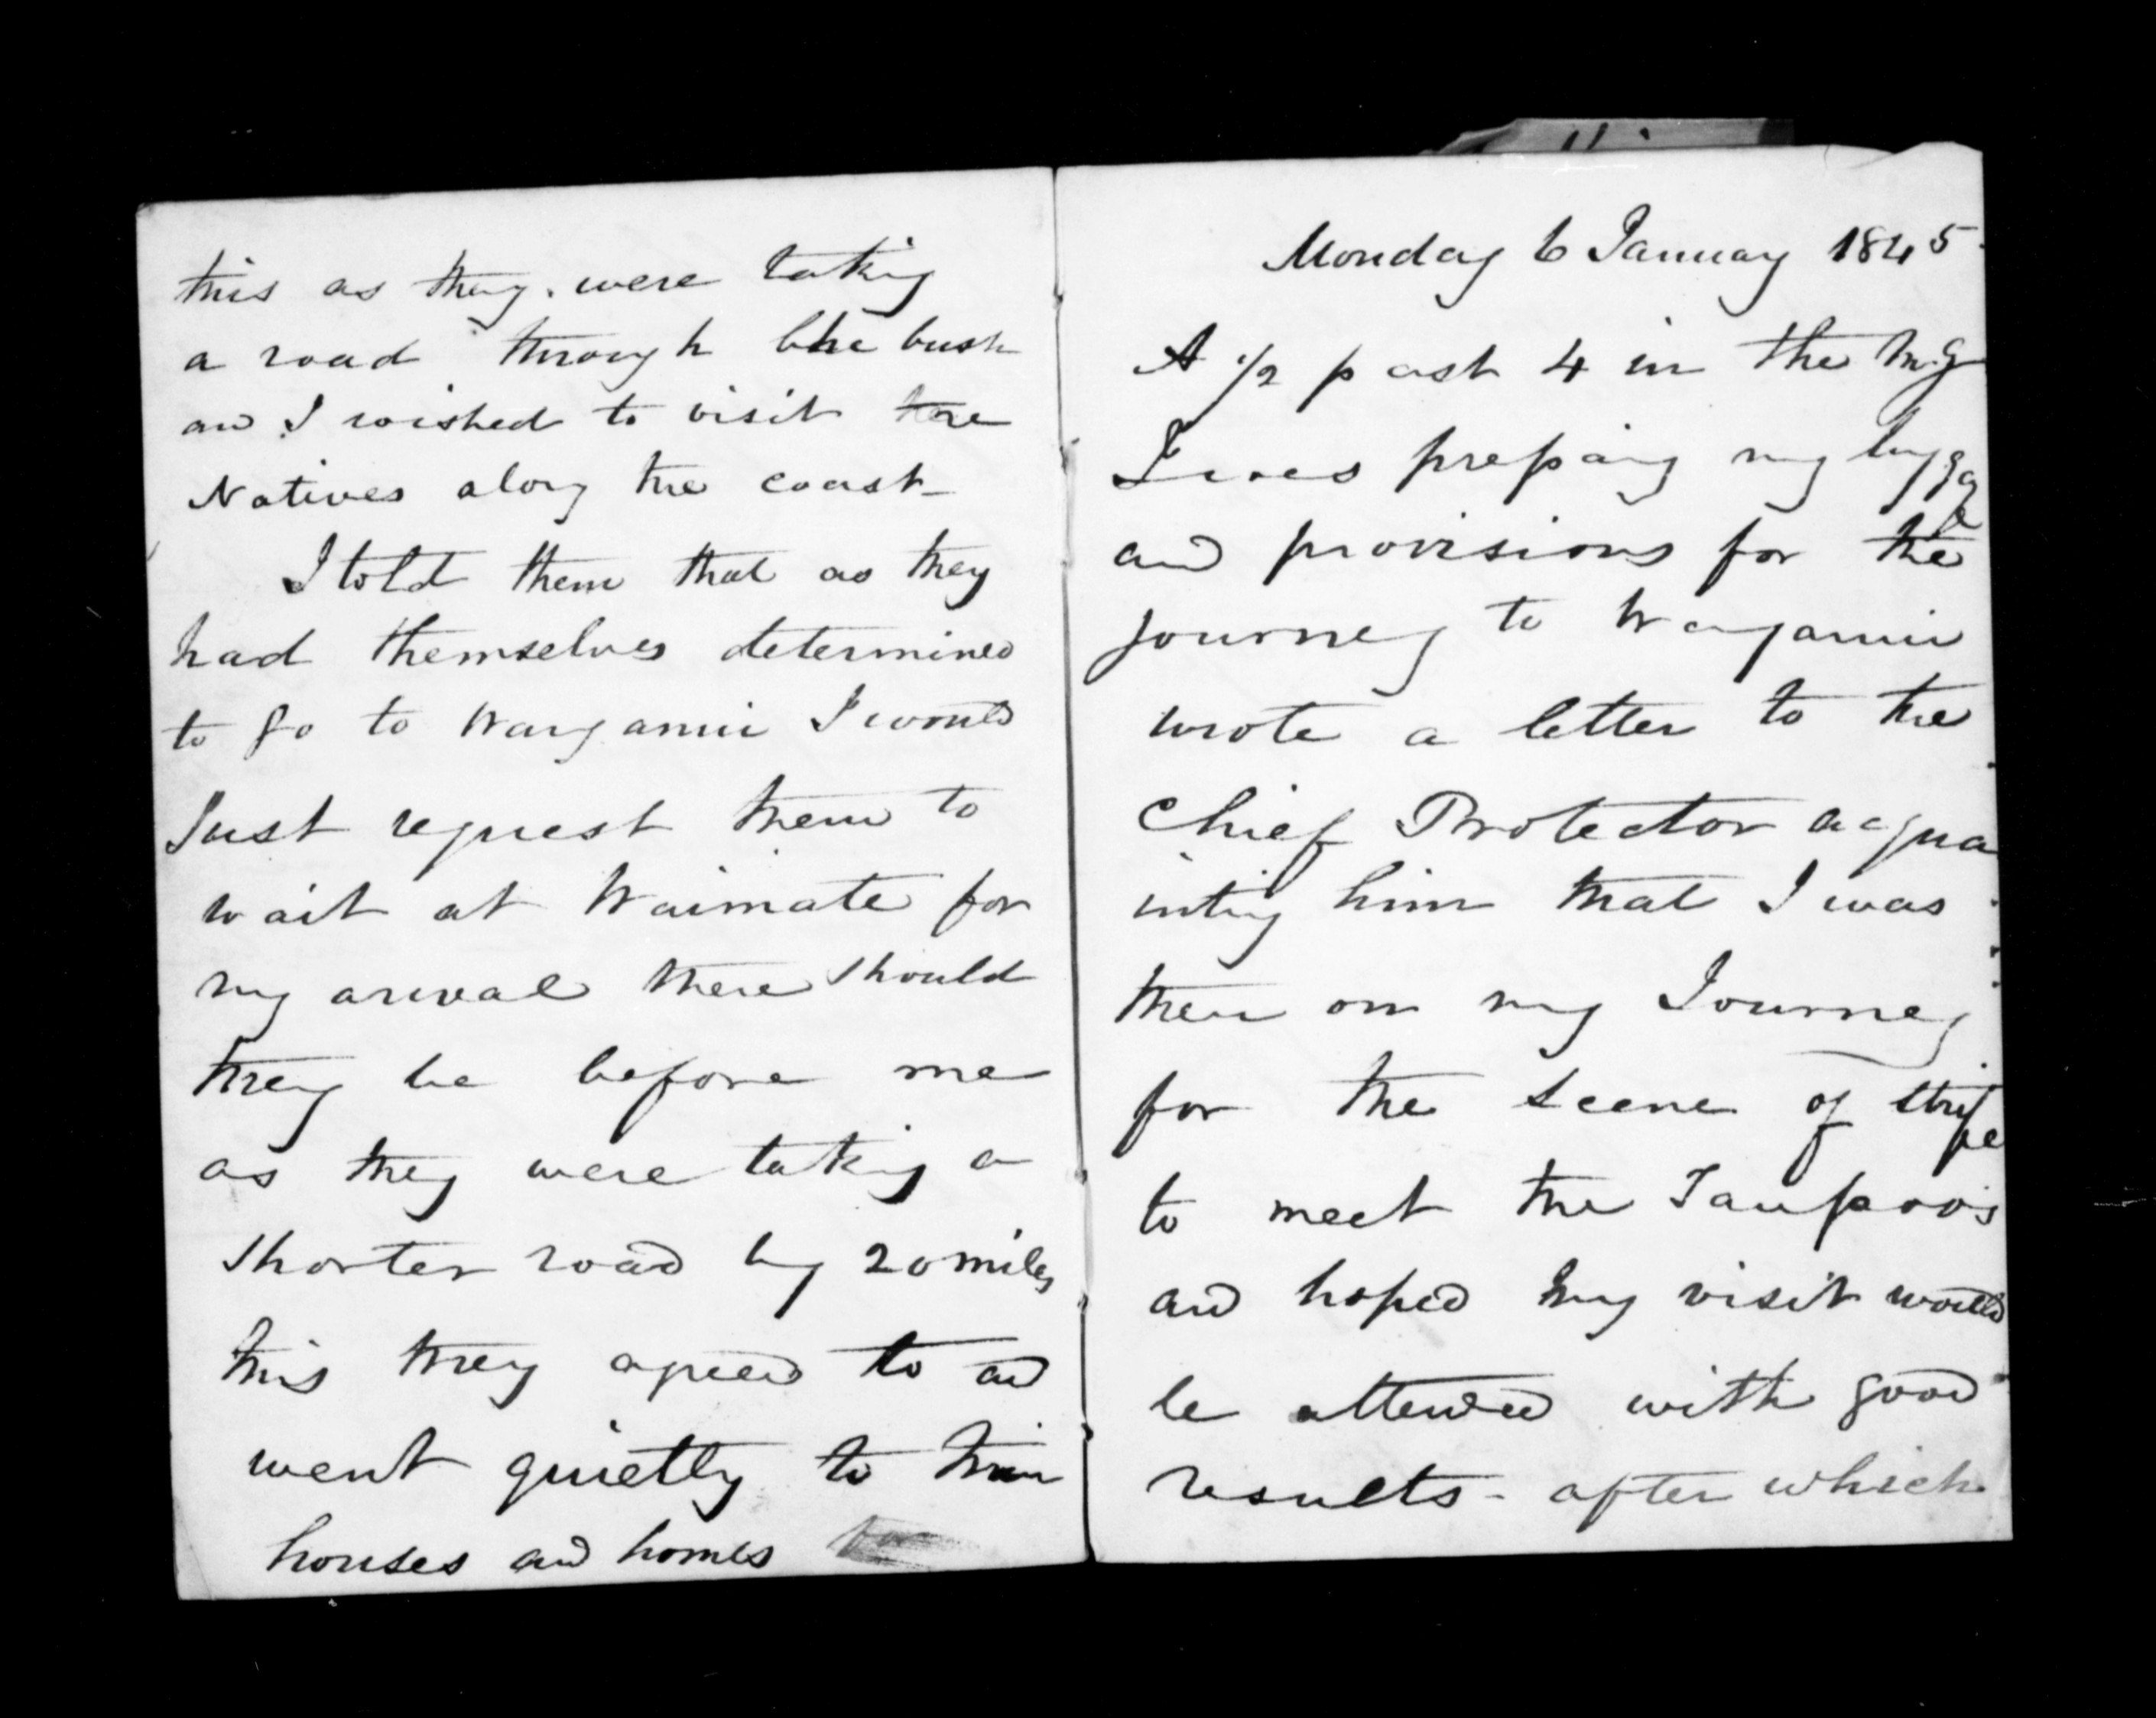 this as they were taking
a road through the bush
and I wished to visit the
Natives along the coast -
I told them that as they
had themselves determined
to go to Wanganui I would
Just request them to
wait at Waimate for
my arival there should
they be before me
as they were taking a
shorter road by 20 miles
this they agreed to and
went quietly to their
houses and homes
Monday 6 January 1845.
A 1/2 past 4 in the Mg
I was preparing my luggage
and provisions for the
Journey to Wanganui
wrote a letter to the
Chief Protector acqua
inting him that I was
then on my Journey
for the scene of strife
to meet the Taupoo's
and hoped my visit would
be attended with good
results - after which